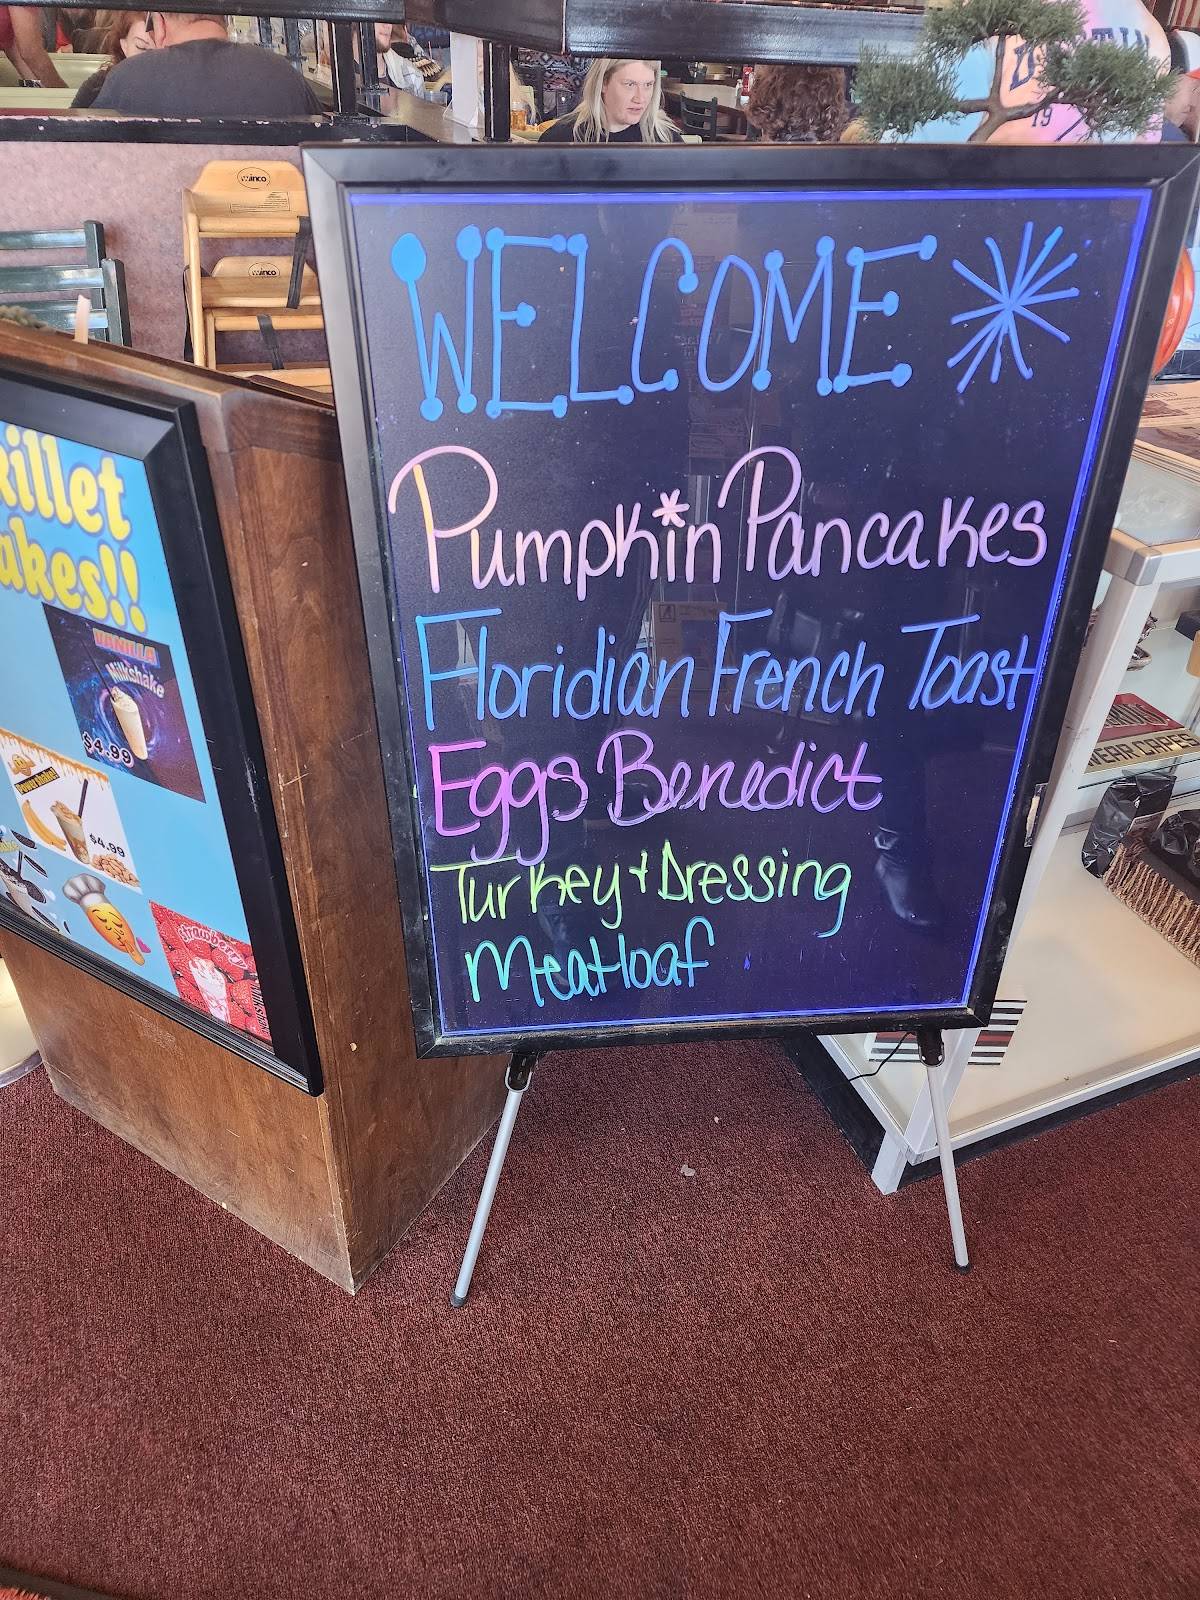 WELCOME
Pumpkin Pancakes
Floridian French Toast
Eggs Benedict
Turkey + Dressing
Meatloaf
winco
winco
killet
akes!!
VANILLA
Milkshake
$4.99
$4.99
Strawberry
19